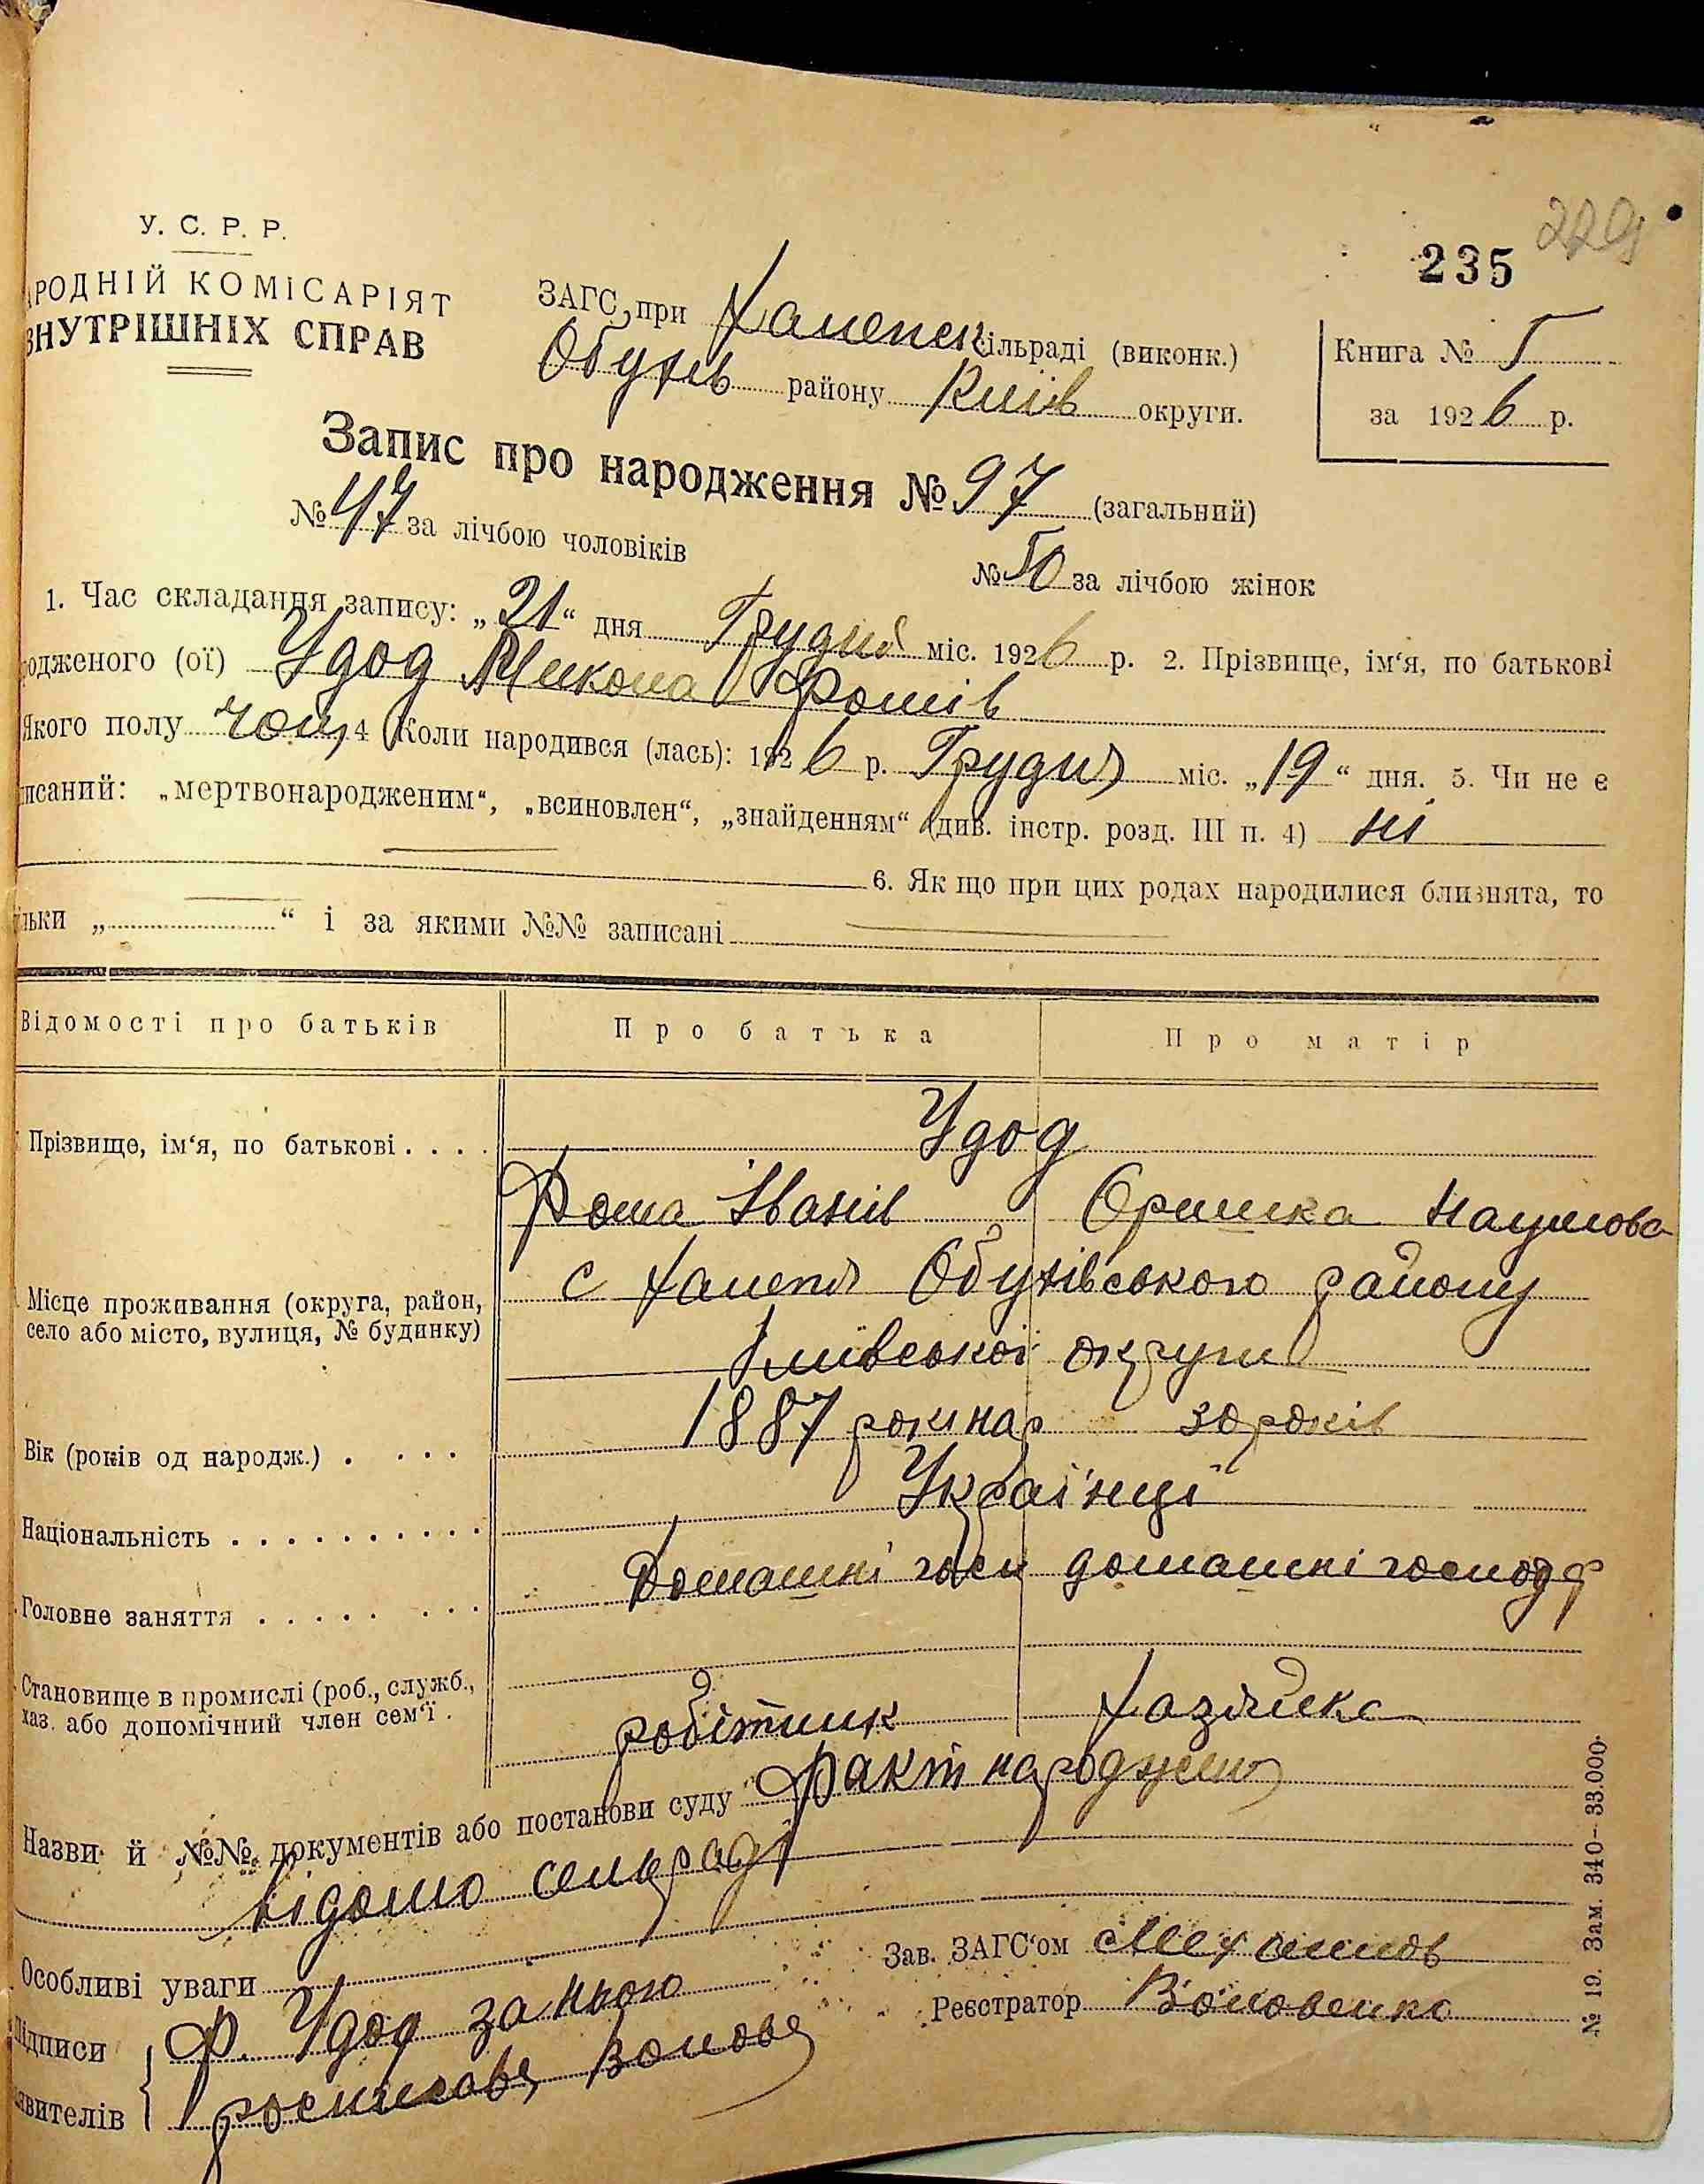 У. С. Р. Р.
АРОДНІЙ КОМІСАРІЯТ
ВНУТРІШНІХ СПРАВ
ЗАГС при Халепск сільраді (виконк.)
Обухів району Київ округи.
235
229
Книга № 5
за 1926 р.
Запис про народження № 97 (загальний)
№ 47 за лічбою чоловіків
№ 50 за лічбою жінок
1. Час складання запису: „21“ дня Грудня міс. 1926 р. 2. Прізвище, ім‘я, по батькові
одженого (ої) Удод Микола Фомів
Якого полу чол, 4 Коли народився (лась): 1926 р. Грудня міс. „19“ дня. 5. Чи не є
писаний: „мертвонародженим“, „всиновлен“, „знайденням“ (див. інстр. розд. III п. 4) ні
6. Як що при цих родах народилися близнята, то
льки „ “ і за якими №№ записані
Відомості про батьків Про батька Про матір
Прізвище, ім‘я, по батькові . . . . Удод
Фома Іванів Оришка Наумова
Місце проживання (округа, район, с Халепя Обухівського району
село або місто, вулиця, № будинку)
Київської округи
Вік (років од народж.) . . . . 1887 рокі нар 30 років
Національність . . . . . . . . . . Українці
Головне заняття . . . . . . . . Домашні госп домашні господ
Становище в промислі (роб., служб.,
хаз. або допомічний член сем‘ї . робітник Хазяйка
Назви й №№ документів або постанови суду Факт народженя
відомо сельраді
Особливі уваги
Зав. ЗАГС‘ом
Реєстратор Воловенко
ідписи Ф. Удод за нього
явителів росписавя Волове
№ 19. Зам. 340–33.000.